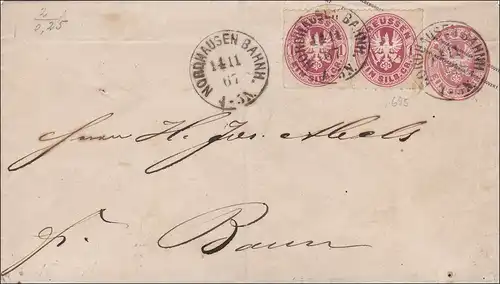 2
0,25
NORDHAUSEN BAHNH.
14 11
67
4-5N.
NORDHAUSEN BAHNH.
14 11
67
PREUSSEN
EIN SILB.GR.
EIN SILB.GR.
NORDHAUSEN BAHNH.
685
Herrn H. Jos. Abels
fr. Bonn